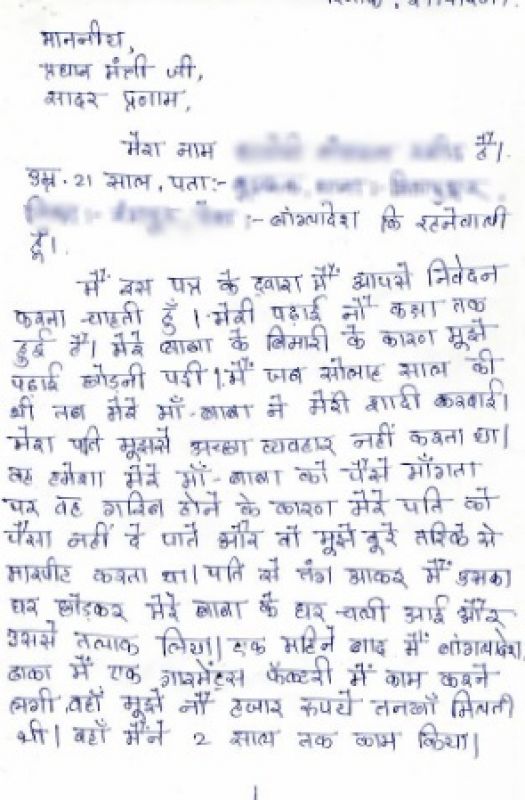 माननीय,
प्रधान मंत्री जी,
सादर प्रणाम,
मेरा नाम है।
उम्र. 21 साल, पता:-
:- बांग्लादेश कि रहनेवाली
हूँ।
मैं इस पत्र के द्वारा मैं आपसे निवेदन
करना चाहती हूँ । मेरी पढ़ाई नौ कक्षा तक
हुई है। मेरे बाबा के बिमारी के कारण मुझे
पढाई छोडनी पडी। मैं जब सोलाह साल की
थी तब मेरे माँ-बाबा ने मेरी शादी करवाई।
मेरा पति मुझसे अच्छा व्यवहार नहीं करता था।
वह हमेशा मेरे माँ-बाबा को पैसे माँगता
पर वह गरिब होने के कारण मेरे पति को
पैसा नहीं दे पाते और वो मुझे बूरे तरिके से
मारपीट करता था। पति से तंग आकर मैं उसका
घर छोडकर मेरे बाबा के घर चली आई और
उससे तलाक लिया। एक महिने बाद मैं बांग्लादेश,
ढाका मैं एक गारमेंट्स फॅक्टरी मैं काम करने
लगी वहाँ मुझे नौ हजार रुपये तनखाँ मिलती
थी। वहाँ मैंने 2 साल तक काम किया।
1